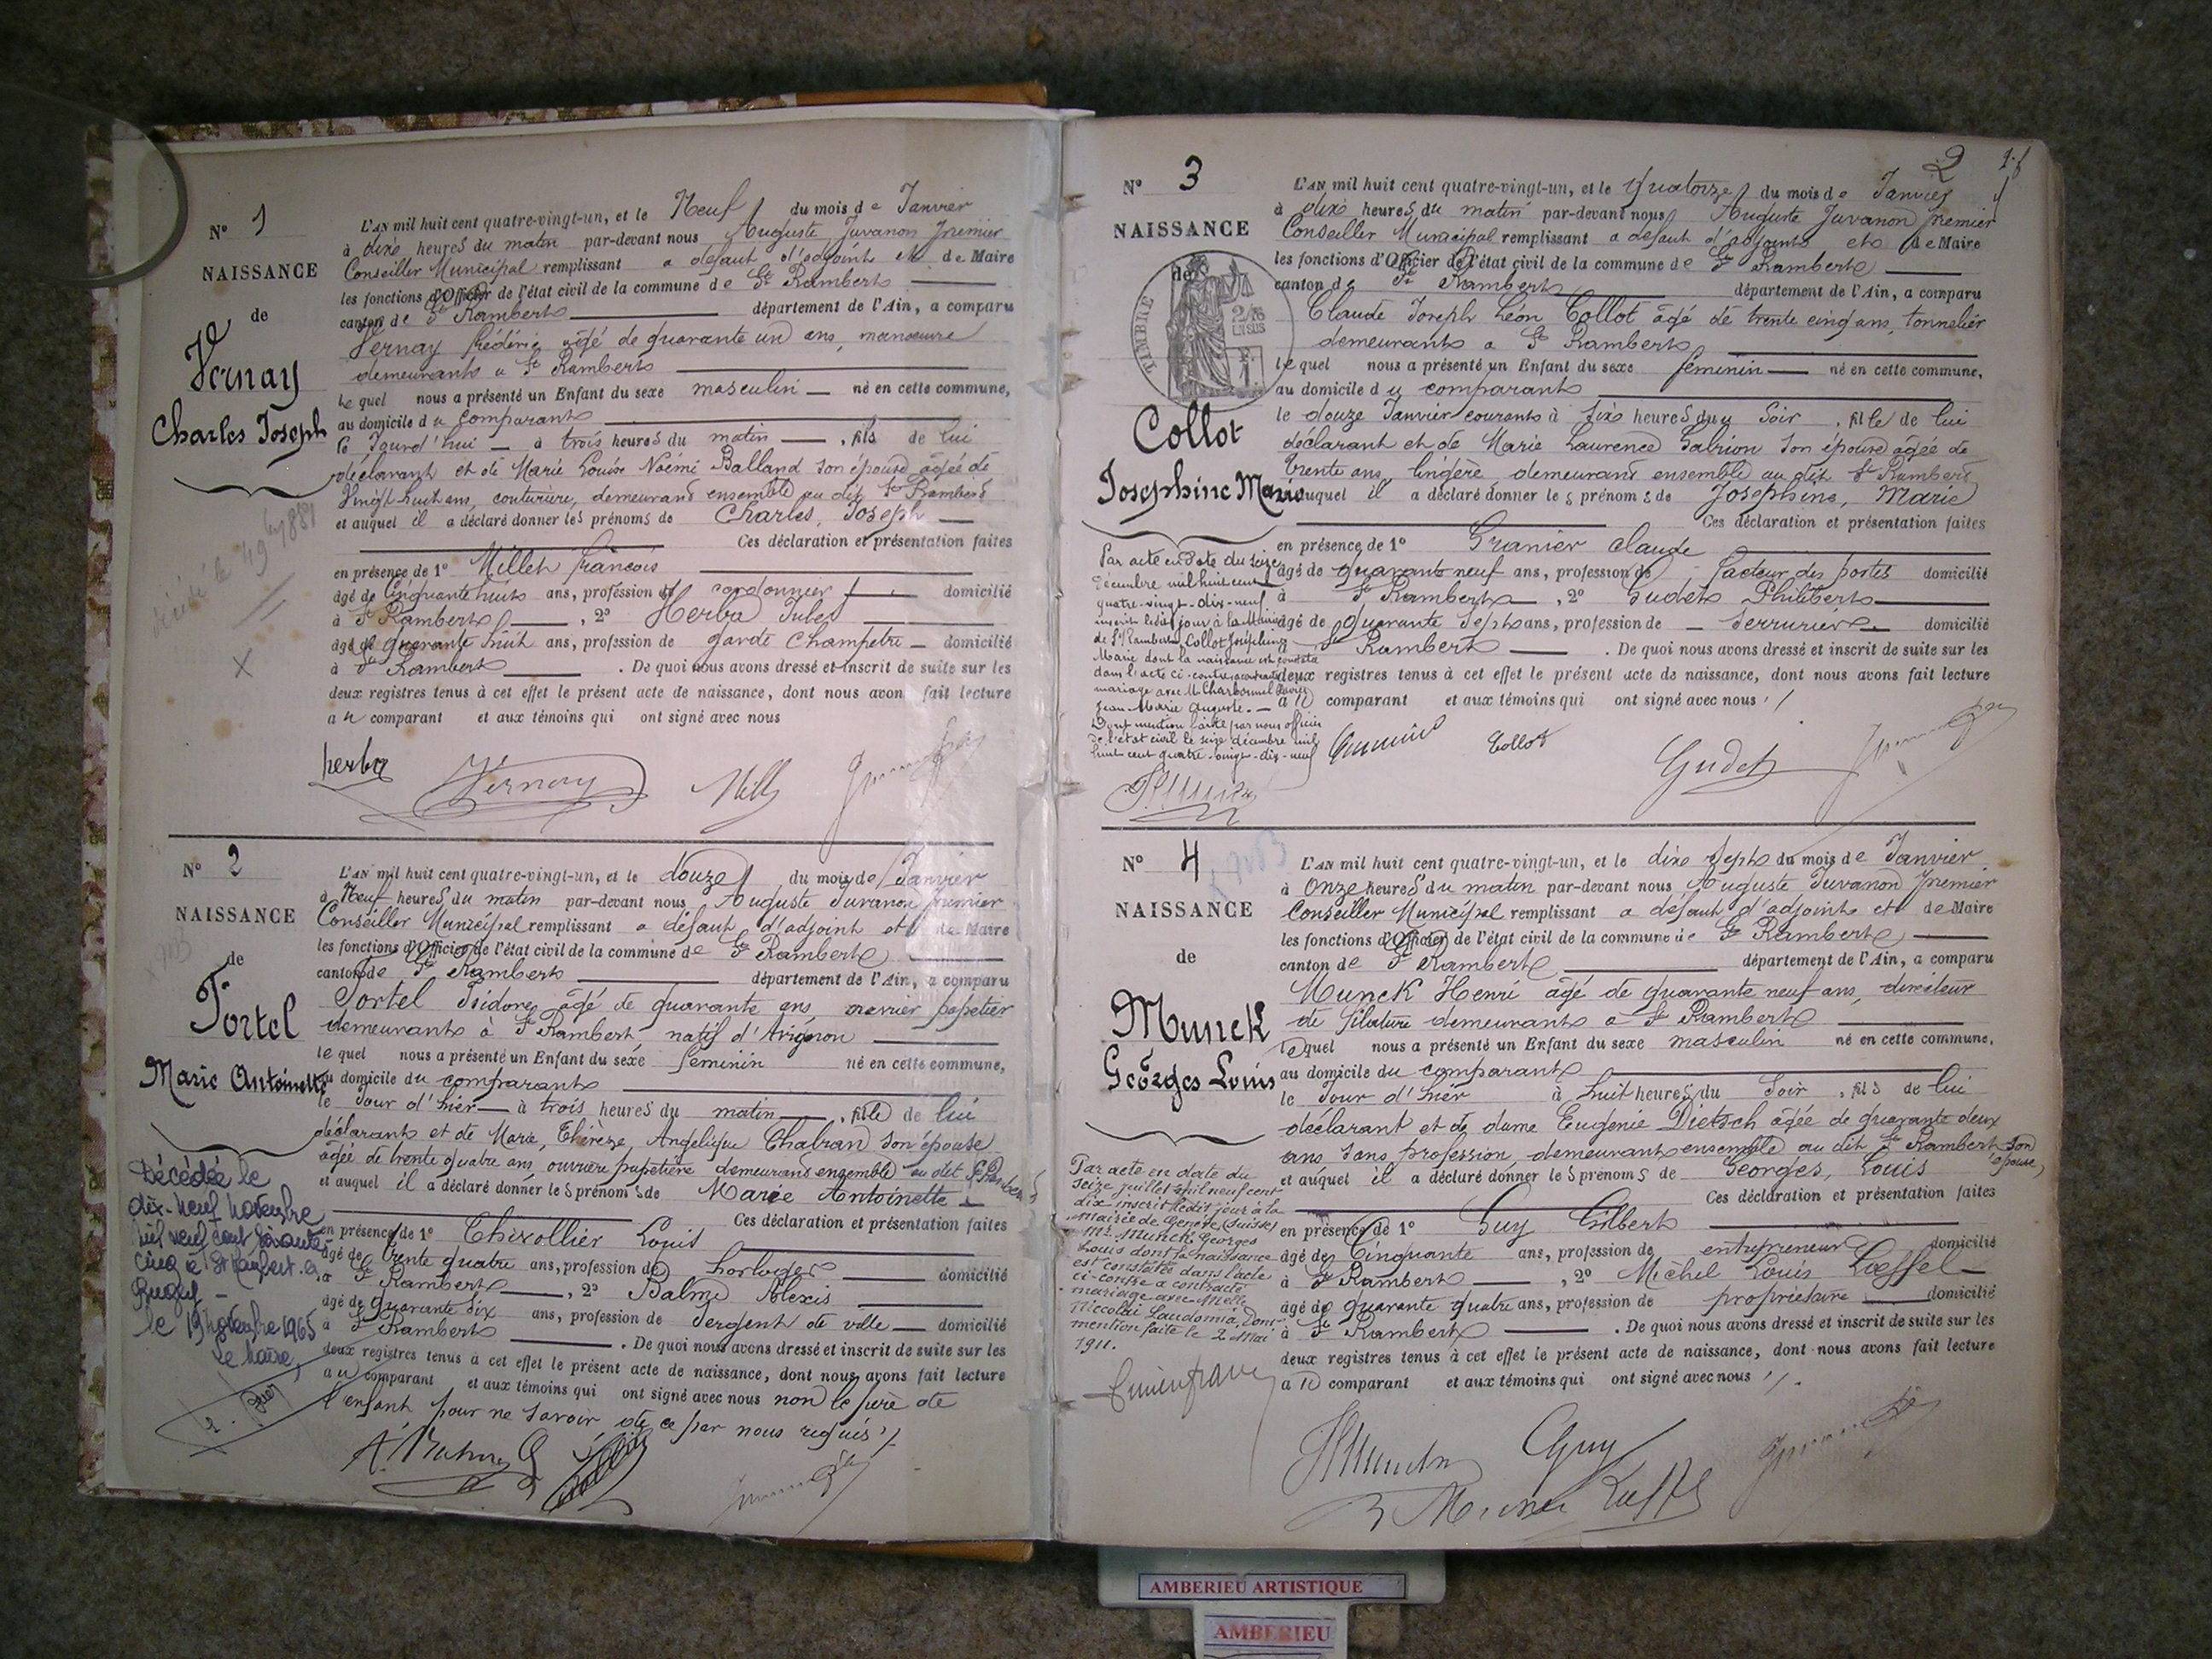 N° 1
NAISSANCE
de
Vernay
Charles Joseph
L'AN mil huit cent quatre-vingt-un, et le Neuf du mois de Janvier
à dix heures du matin par-devant nous Auguste Juvanon premier
Conseiller Municipal remplissant a défaut d'adjoint et de Maire
les fonctions d'Officier de l'état civil de la commune de St Rambert
canton de St Rambert département de l'Ain, a comparu
Vernay frédéric âgé de quarante un ans, manoeuvre
demeurant a St Rambert
Le quel nous a présenté un Enfant du sexe masculin né en cette commune,
au domicile du comparant
le Jourd'hui à trois heures du matin, fils de lui
déclarant et de Marie Louise Noémi Balland son épouse âgée de
Vingt huit ans, couturière, demeurant ensemble au dit St Rambert
et auquel il a déclaré donner les prénoms de Charles, Joseph
Ces déclaration et présentation faites
en présence de 1° Millet françois
âgé de Cinquante huit ans, profession de cordonnier domicilié
à St Rambert, 2° Herba Jules
âgé de quarante huit ans, profession de garde Champetre domicilié
à St Rambert. De quoi nous avons dressé et inscrit de suite sur les
deux registres tenus à cet effet le présent acte de naissance, dont nous avon fait lecture
au comparant et aux témoins qui ont signé avec nous
herba Vernay
N° 2
NAISSANCE
de
Tortel
Marie Antoinette
Décédée le
dix-neuf novembre
mil neuf cent soixante
cinq à St Rambert en
Bugey
le 19 novembre 1965
Le Maire,
L'AN mil huit cent quatre-vingt-un, et le douze du mois de Janvier
à Neuf heures du matin par-devant nous Auguste Juvanon premier
Conseiller Municipal remplissant a défaut d'adjoint et de Maire
les fonctions d'Officier de l'état civil de la commune de St Rambert
canton de St Rambert département de l'Ain, a comparu
Tortel Isidore, âgé de quarante ans, ouvrier papetier
demeurant à St Rambert, natif d'Avignon
le quel nous a présenté un Enfant du sexe féminin né en cette commune,
au domicile du comparant
le Jour d'hier à trois heures du matin, fille de lui
déclarant et de Marie, Thérèze, Angelique Chabran son épouse
âgée de trente quatre ans, ouvrière papetière demeurant ensemble au dit St Rambert
et auquel il a déclaré donner les prénoms de Marie Antoinette
Ces déclaration et présentation faites
en présence de 1° Thivollier Louis
âgé de trente quatre ans, profession de horloger domicilié
à St Rambert, 2° Balme Alexis
âgé de quarante six ans, profession de Sergent de ville domicilié
à St Rambert. De quoi nous avons dressé et inscrit de suite sur les
deux registres tenus à cet effet le présent acte de naissance, dont nous avons fait lecture
au comparant et aux témoins qui ont signé avec nous non le père de
l'enfant pour ne savoir de ce par nous requis
2
N° 3
NAISSANCE
de
TIMBRE
Collot
Josephine Marie
Par acte en date du seize
décembre mil huit cent
quatre-vingt-dix-neuf
inscrit ledit jour à la Mairie
de St Rambert, Collot Joséphine
Marie dont la naissance est constatée
dans l'acte ci-contre a contracté
mariage avec Mr Charbonnel
Jean-Marie Auguste.
Dont mention faite par nous officier
de l'état civil le seize décembre mil
huit cent quatre-vingt-dix-neuf
L'AN mil huit cent quatre-vingt-un, et le Quatorze du mois de Janvier
à dix heures du matin par-devant nous Auguste Juvanon premier
Conseiller Municipal remplissant a défaut d'adjoint et de Maire
les fonctions d'Officier de l'état civil de la commune de St Rambert
canton de St Rambert département de l'Ain, a comparu
Claude Joseph Léon Collot âgé de trente cinq ans, tonnelier
demeurant a St Rambert
lequel nous a présenté un Enfant du sexe féminin né en cette commune,
au domicile du comparant
le douze Janvier courant à six heures du Soir, fille de lui
déclarant et de Marie Laurence Gabrion son épouse âgée de
trente ans, lingère, demeurant ensemble au dit St Rambert
auquel il a déclaré donner les prénoms de Josephine, Marie
Ces déclaration et présentation faites
en présence de 1° Granier Claude
âgé de quarante neuf ans, profession de facteur des postes domicilié
à St Rambert, 2° Gudet Philibert
âgé de quarante Sept ans, profession de Serrurier domicilié
St Rambert. De quoi nous avons dressé et inscrit de suite sur les
deux registres tenus à cet effet le présent acte de naissance, dont nous avons fait lecture
au comparant et aux témoins qui ont signé avec nous
Collot Gudet
N° 4
NAISSANCE
de
Munck
Georges Louis
Par acte en date du
seize juillet mil neuf cent
dix inscrit ledit jour à la
mairie de Genève (Suisse)
Mr Munck Georges
Louis dont la naissance
est constatée dans l'acte
ci-contre a contracté
mariage avec Melle
Niccolai Laudomia, Dont
mention faite le 2 Mai
1911.
L'AN mil huit cent quatre-vingt-un, et le dix Sept du mois de Janvier
à Onze heures du matin par-devant nous Auguste Juvanon premier
Conseiller Municipal remplissant a défaut d'adjoint et de Maire
les fonctions d'Officier de l'état civil de la commune de St Rambert
canton de St Rambert département de l'Ain, a comparu
Munck Henri âgé de quarante neuf ans, directeur
de filature demeurant a St Rambert
lequel nous a présenté un Enfant du sexe masculin né en cette commune,
au domicile du comparant
le Jour d'hier à huit heures du Soir, fils de lui
déclarant et de dame Eugénie Dietsch âgée de quarante deux
ans Sans profession, demeurant ensemble au dit St Rambert son épouse,
et auquel il a déclaré donner les prénoms de Georges, Louis
Ces déclaration et présentation faites
en présence de 1° Guy Gilbert
âgé de Cinquante ans, profession de entrepreneur domicilié
à St Rambert, 2° Michel Louis Loeffel
âgé de quarante quatre ans, profession de propriétaire domicilié
à St Rambert. De quoi nous avons dressé et inscrit de suite sur les
deux registres tenus à cet effet le présent acte de naissance, dont nous avons fait lecture
au comparant et aux témoins qui ont signé avec nous
Guy
AMBERIEU ARTISTIQUE
AMBERIEU